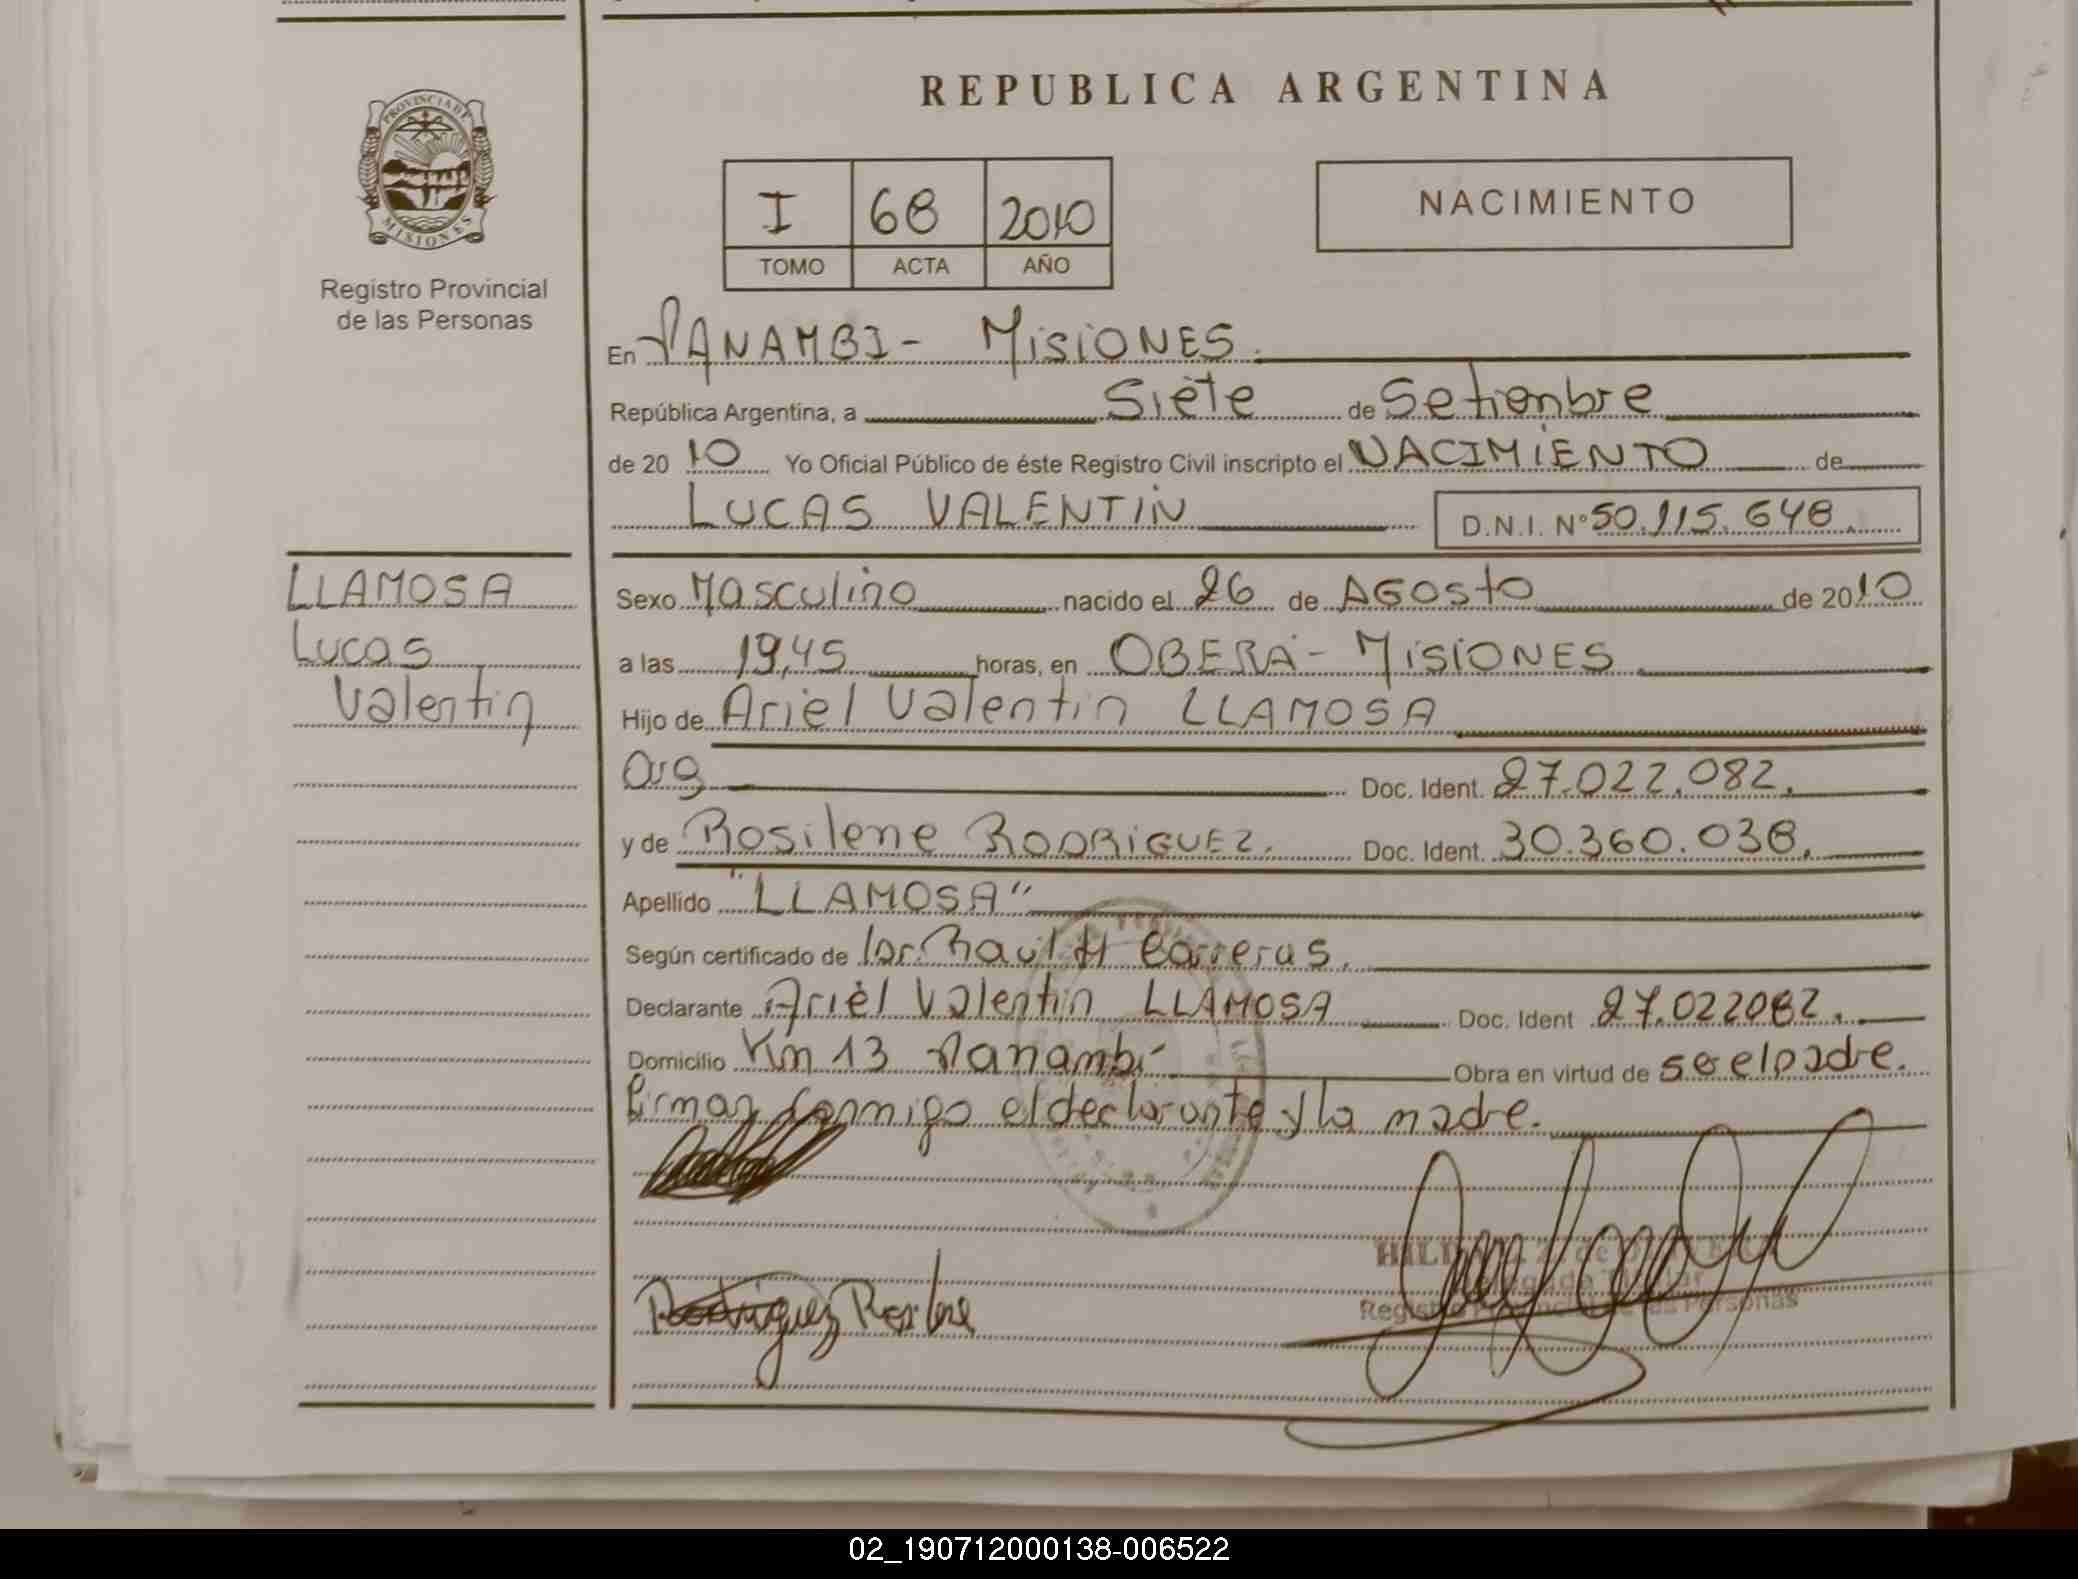 REPUBLICA ARGENTINA
PROVINCIA DE
MISIONES
Registro Provincial
de las Personas
I 68 2010
TOMO ACTA AÑO
NACIMIENTO
En PANAMBI - MISIONES.
República Argentina, a Siete de Setiembre
de 2010 Yo Oficial Público de éste Registro Civil inscripto el NACIMIENTO de
LUCAS VALENTIN D.N.I. N° 50.115.648.
LLAMOSA
Lucas
Valentin
Sexo Masculino nacido el 26 de AGOSTO de 2010
a las 19,45 horas, en OBERÁ - MISIONES
Hijo de Ariel Valentin LLAMOSA
Arg Doc. Ident. 27.022.082.
y de Rosilene RODRIGUEZ. Doc. Ident. 30.360.038.
Apellido "LLAMOSA"
Según certificado de Raul H Carreras.
Declarante Ariel Valentin LLAMOSA Doc. Ident 27.022082.
Domicilio Km 13 Panambí Obra en virtud de se el padre.
Firman conmigo el declarante y la madre.
Rodriguez Rosilene
Delegada Titular
Registro Provincial de las Personas
02_190712000138-006522